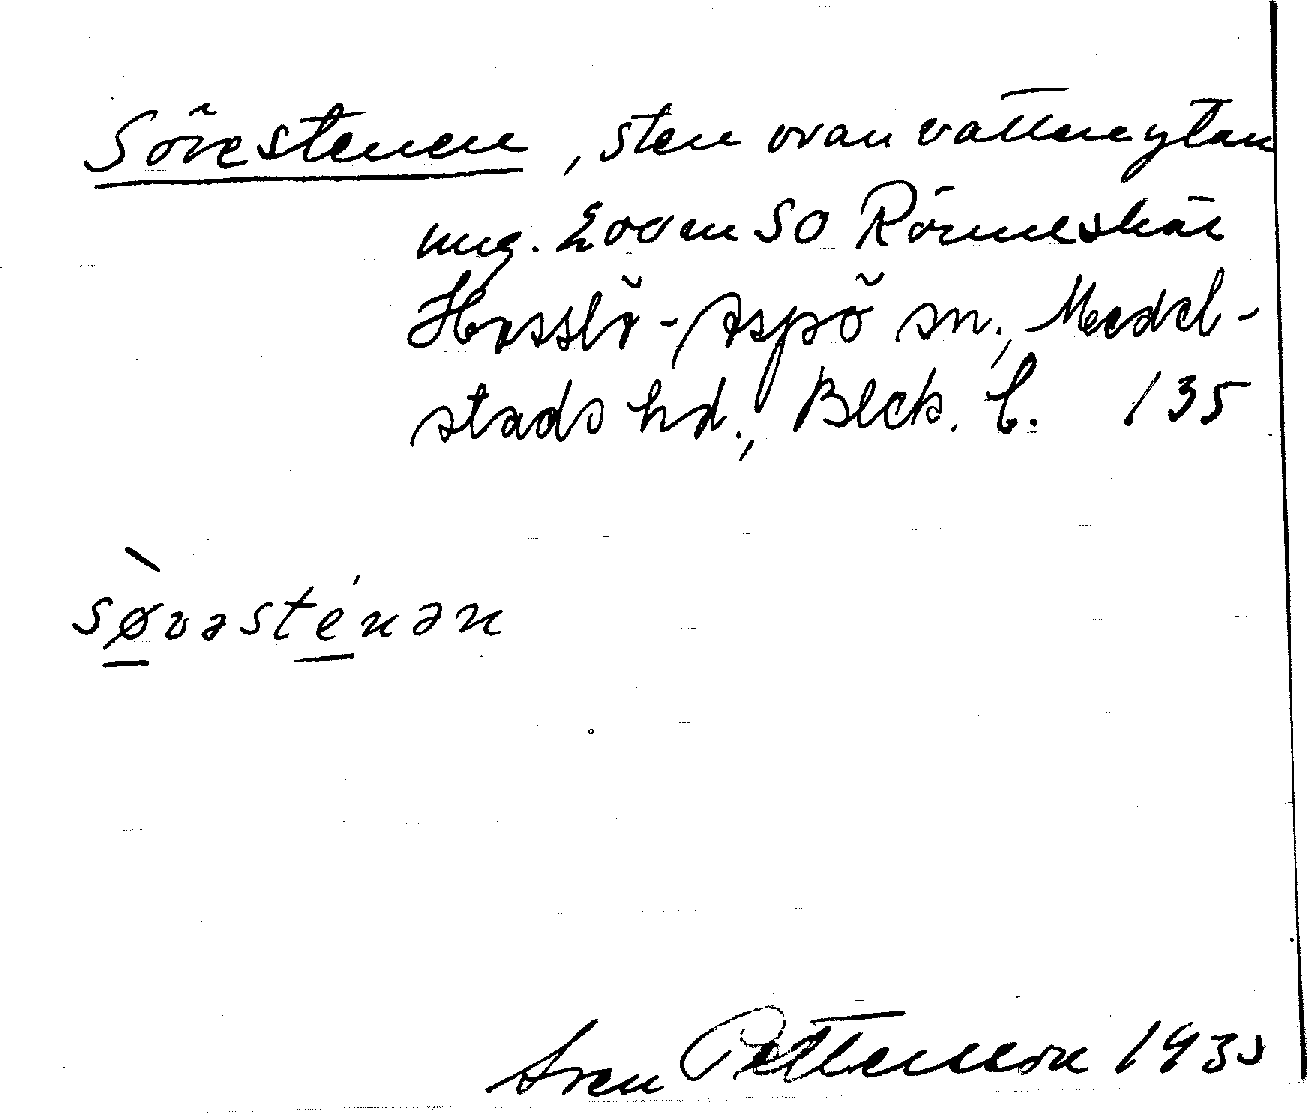 Sövestenen, sten ovan vattenytan
ung. 200 m SO Rönneskär
Hasslö-Aspö sn., Medel-
stads hd., Blek. l. 135
sø̀vəsténən
Sven Pettersson 1935